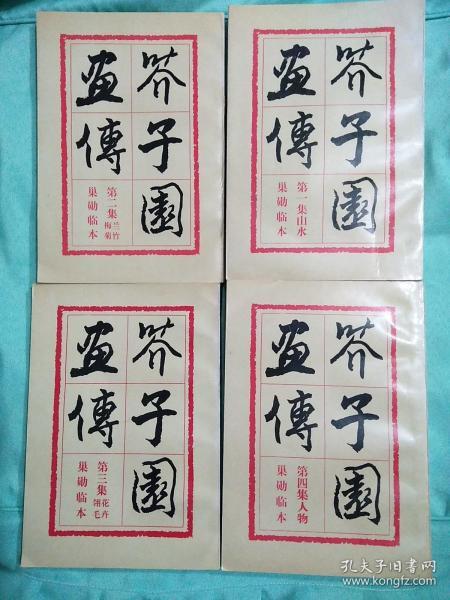 芥子園
畫傳
第二集 兰竹
梅菊
巢勋临本
芥子園
畫傳
第一集山水
巢勋临本
芥子園
畫傳
第三集 花卉
翎毛
巢勋临本
芥子園
畫傳
第四集人物
巢勋临本
孔夫子旧书网
www.kongfz.com